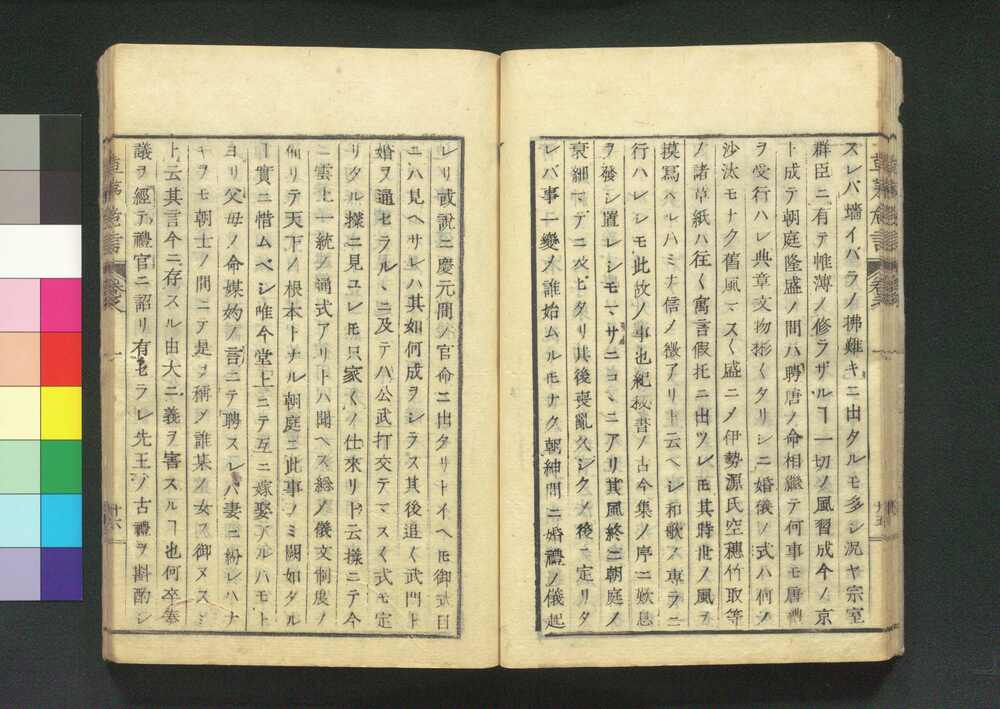 スレバ墻イバラノ拂難キニ出タルモ多シ況ヤ宗室
群臣ニ有テ帷薄ノ修ラザルヿ一切ノ風習成今ノ京
ト成テ朝庭隆盛ノ間ハ聘唐ノ命相繼テ何事モ唐禮
ヲ受行ハレ典章文物彬〱タリシニ婚儀ノ式ハ何ノ
沙汰モナク舊風マス〱盛ニメ伊勢源氏空穗竹取等
ノ諸草紙ハ往〱寓言假托ニ出ツレ𪜈其時世ノ風ヲ
摸寫ヘルハミナ信ノ徴アリト云ヘシ和歌ヌ専ラニ
行ハレシモ此故ノ事也紀秘書ノ古今集ノ序ニ歎息
ヲ發シ置レシモマサニコヽニアリ其風終ニ朝庭ノ
衰細マデニ及ビタリ其後喪亂久シクメ後ニ定リタ
レバ事一變メ誰始ムルモナク朝紳間ニ婚禮ノ儀起
レリ或説ニ慶元間ノ官命ニ出タリトイヘ𪜈御式目
ニハ見ヘサレハ其如何成ヲシラス其後追〱武門ト
婚ヲ通セラルヽニ及テハ公武打交テマス〱式モ定
リタル樣ニ見ユレ𪜈只家〱ノ仕來リト云樣ニテ今
ニ雲上一統ノ通式アリトハ聞ヘス総ノ儀文制度ノ
備リテ天下ノ根本トナル朝庭ニ此事ノミ闕如タル
ヿ實ニ惜ムベシ唯今堂上ニテ互ニ嫁娶アルハモト
ヨリ父母ノ命媒妁ノ言ニテ聘スレバ妻ニ紛レハナ
キヲモ朝士ノ間ニテ是ヲ稱メ誰某ノ女ヌ御ヌスミ
ト云其言今ニ存スル由大ニ義ヲ害スルヿ也何卒奉
議ヲ經テ禮官ニ詔リ有セラレ先王ノ古禮ヲ斟酌シ